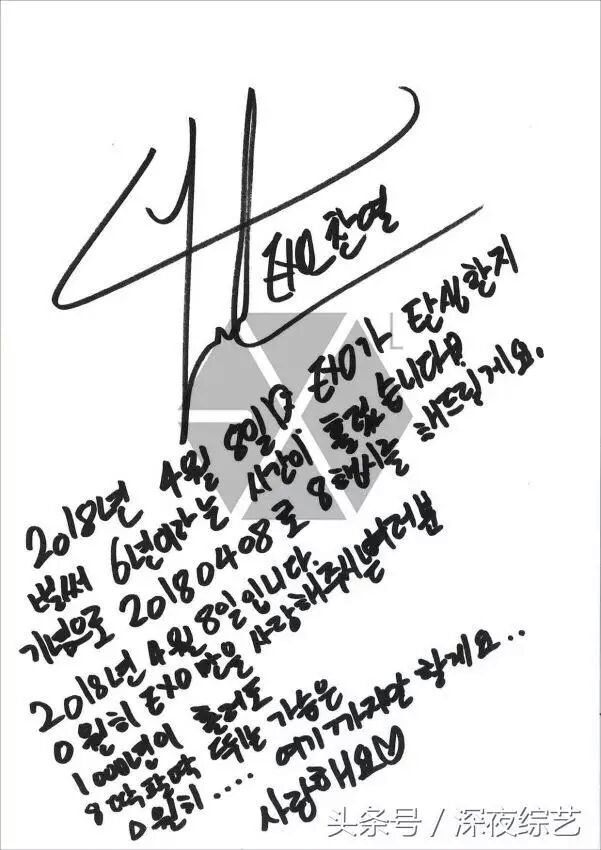 EXO 찬열
2018년 4월 8일! EXO가 탄생한지
벌써 6년이라는 시간이 흘렀습니다!
기념으로 20180408로 8행시를 해드릴게요.
2018년 4월 8일입니다.
0 원히 EXO만을 사랑해주시는 여러분
1000년이 흘러도
8딱팔딱 뛰는 가슴은
0원히.... 여기까지만 할게요...
사랑해요♡
头条号 / 深夜综艺